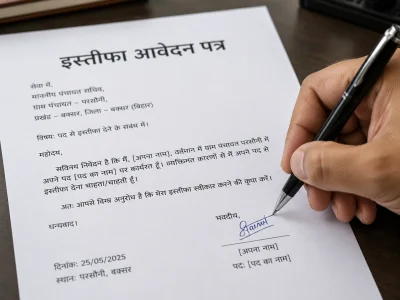 इस्तीफा आवेदन पत्र
सेवा में,
माननीय पंचायत सचिव,
ग्राम पंचायत – परसौनी,
प्रखंड – बक्सर, जिला – बक्सर (बिहार)
विषय: पद से इस्तीफा देने के संबंध में।
महोदय,
सविनय निवेदन है कि मैं, [अपना नाम], वर्तमान में ग्राम पंचायत परसौनी में
अपने पद [पद का नाम] पर कार्यरत हूँ। व्यक्तिगत कारणों से मैं अपने पद से
इस्तीफा देना चाहता/चाहती हूँ।
अतः आपसे विनम्र अनुरोध है कि मेरा इस्तीफा स्वीकार करने की कृपा करें।
धन्यवाद।
भवदीय,
[अपना नाम]
पद: [पद का नाम]
दिनांक: 25/05/2025
स्थान: परसौनी, बक्सर